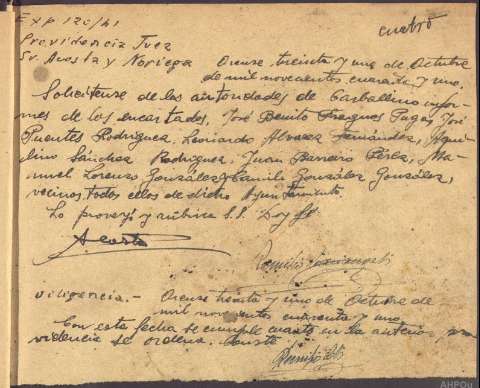 Exp 120/41
cuatro
Providencia Juez
Sr. Acosta y Noriega
Orense treinta y uno de Octubre
de mil novecientos cuarenta y uno.
Solicitense de las autoridades de Carballino infor-
mes de los encartados, José Benito Fragues Puga, José
Puentes Rodriguez, Leonardo Alvarez Fernández, Aqui-
lino Sánchez Rodriguez, Juan Baneiro Pérez, Ma-
nuel Lorenzo González y Camilo González González,
vecinos todos ellos de dicho Ayuntamiento.
Lo proveyó y rubrica S.S. Doy fé
Acosta
Diligencia.- Orense treinta y uno de Octubre de
mil novecientos cuarenta y uno.
Con esta fecha se cumple cuanto en la anterior pro
videncia se ordena. Consta
AHPOu